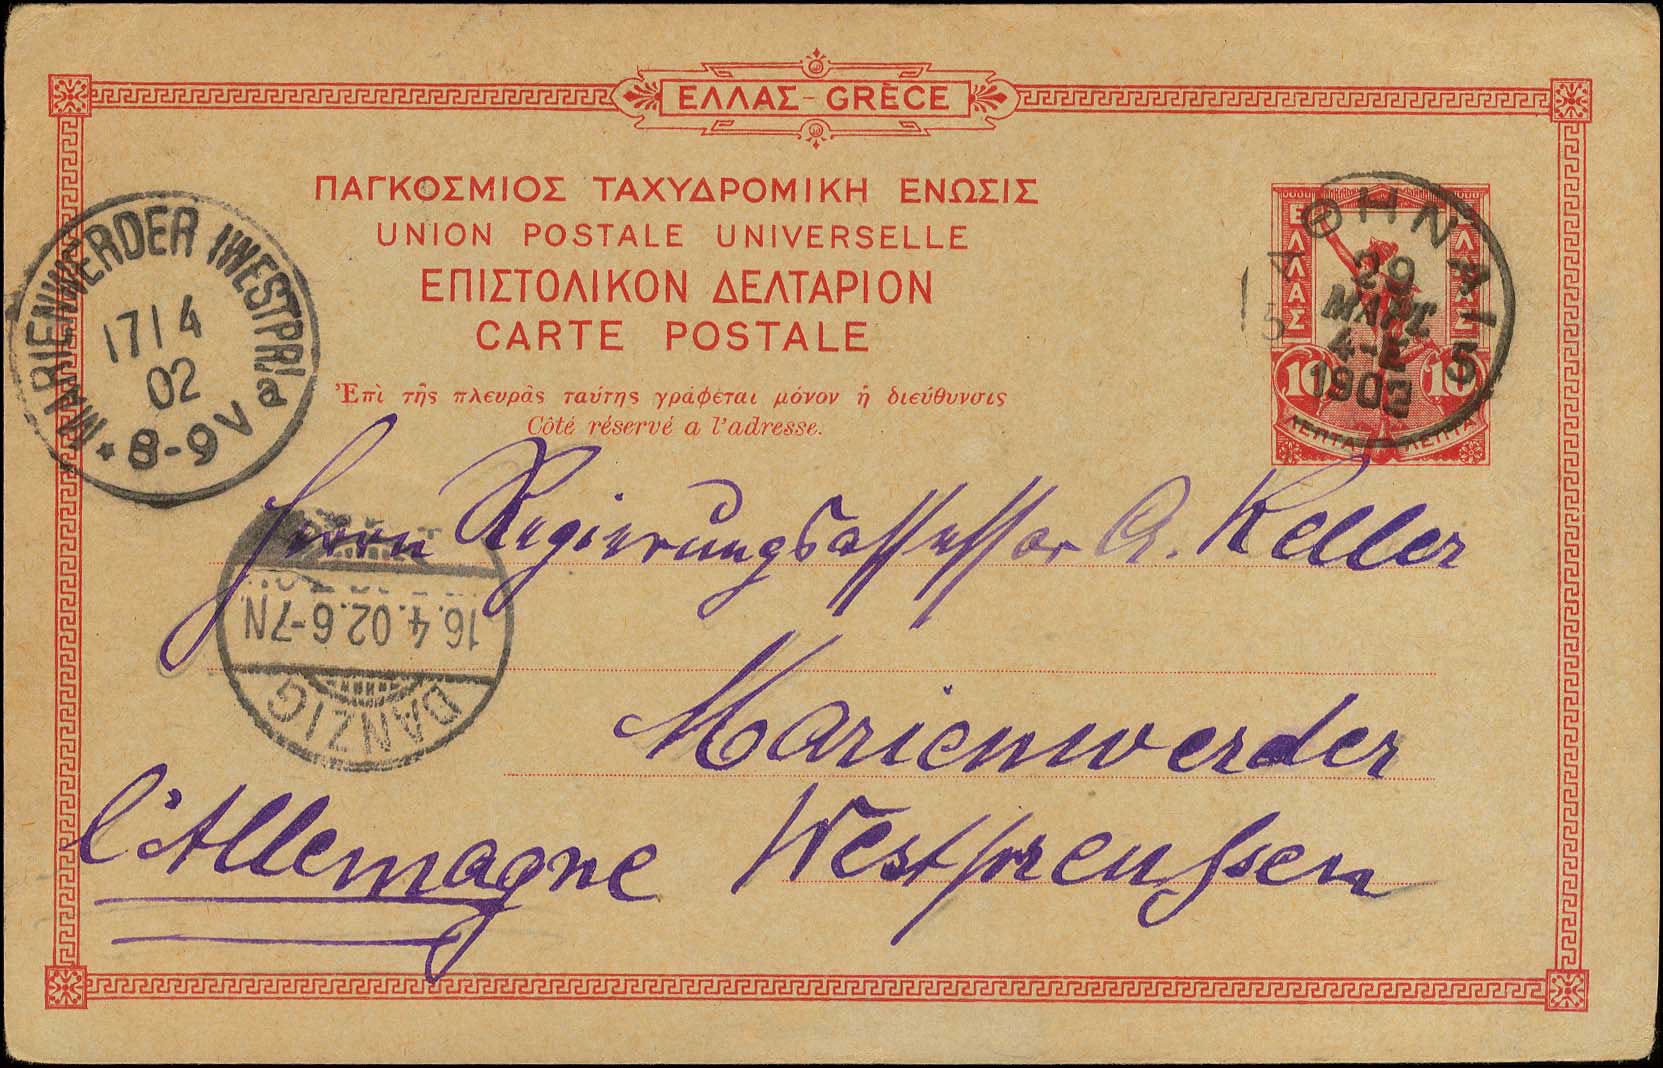 ΕΛΛΑΣ - GRÈCE
ΠΑΓΚΟΣΜΙΟΣ ΤΑΧΥΔΡΟΜΙΚΗ ΕΝΩΣΙΣ
UNION POSTALE UNIVERSELLE
ΕΠΙΣΤΟΛΙΚΟΝ ΔΕΛΤΑΡΙΟΝ
CARTE POSTALE
Ἐπὶ τῆς πλευρᾶς ταύτης γράφεται μόνον ἡ διεύθυνσις
Côté réservé a l'adresse.
ΕΛΛΑΣ ΕΛΛΑΣ
10 10
ΛΕΠΤΑ ΛΕΠΤΑ
ΑΘΗΝΑΙ 5
29
ΜΑΡΤ
1902
MARIENWERDER (WESTPR)
17/4
02
* 8-9V d
Herrn Regierungsassessor A. Keller
16.4.02.6-7N.
DANZIG
Marienwerder
l'Allemagne Westpreußen